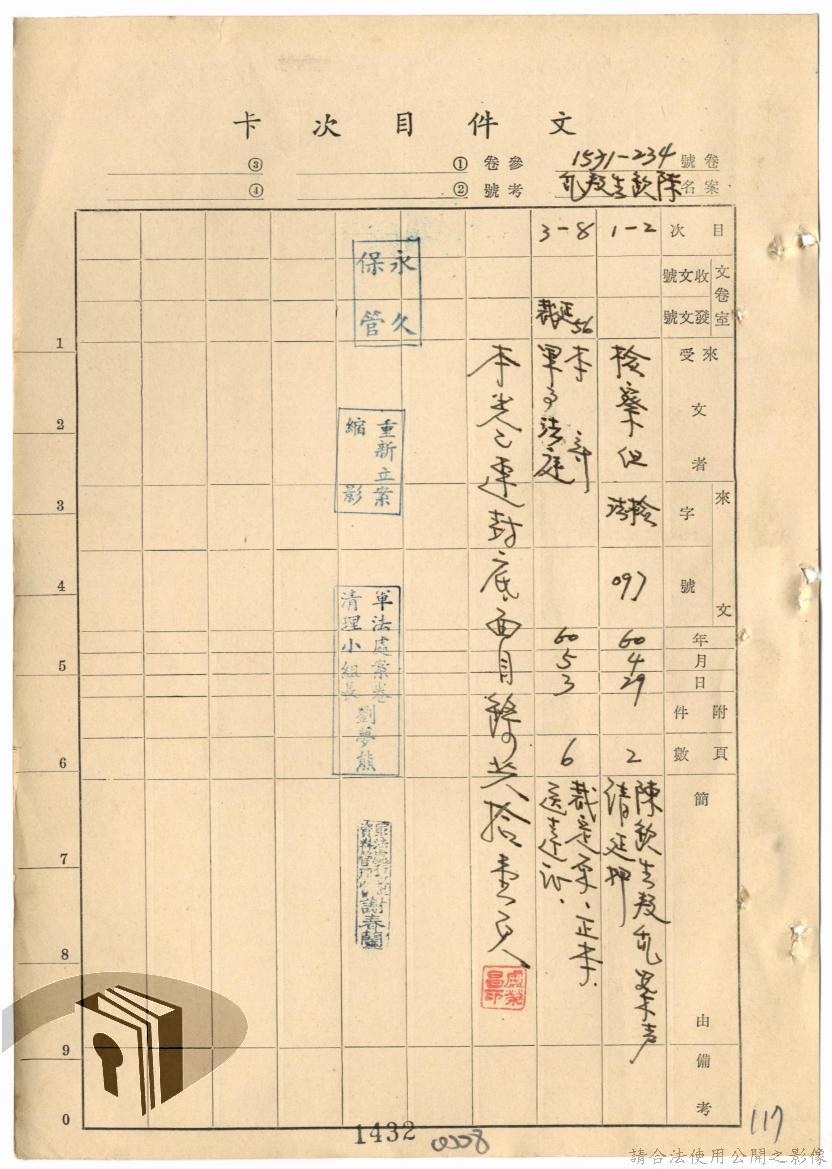 文件目次卡
卷號 1571-234
案名 陳欽生叛亂
參考卷號 ① ② ③ ④
目次
文卷室
收文號
發文號
來文者
受
來文
字
號
年
月
日
附件
頁數
簡由
備考
1-2
檢察官
檢
097
60
4
29
2
陳欽生叛亂案聲請延押
3-8
56
本部
軍事法庭
60
5
3
6
裁定原、正本、
送達證.
本卷已連封底面目錄共拾壹頁
永久
保管
重新立案
縮影
軍法處案卷
清理小組長
劉夢熊
謝春蘭
1
2
3
4
5
6
7
8
9
0
1432
0228
117
請合法使用公開之影像